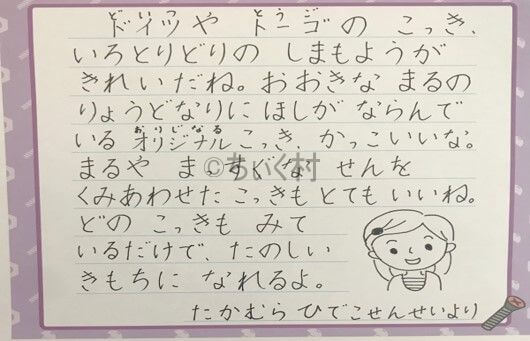 ドイツや トーゴの こっき、
いろとりどりの しまもようが
きれいだね。おおきな まるの
りょうどなりに ほしが ならんで
いる オリジナルこっき、かっこいいな。
まるや まっすぐな せんを
くみあわせた こっきも とても いいね。
どの こっきも みて
いるだけで、たのしい
きもちに なれるよ。
たかむら ひでこせんせいより